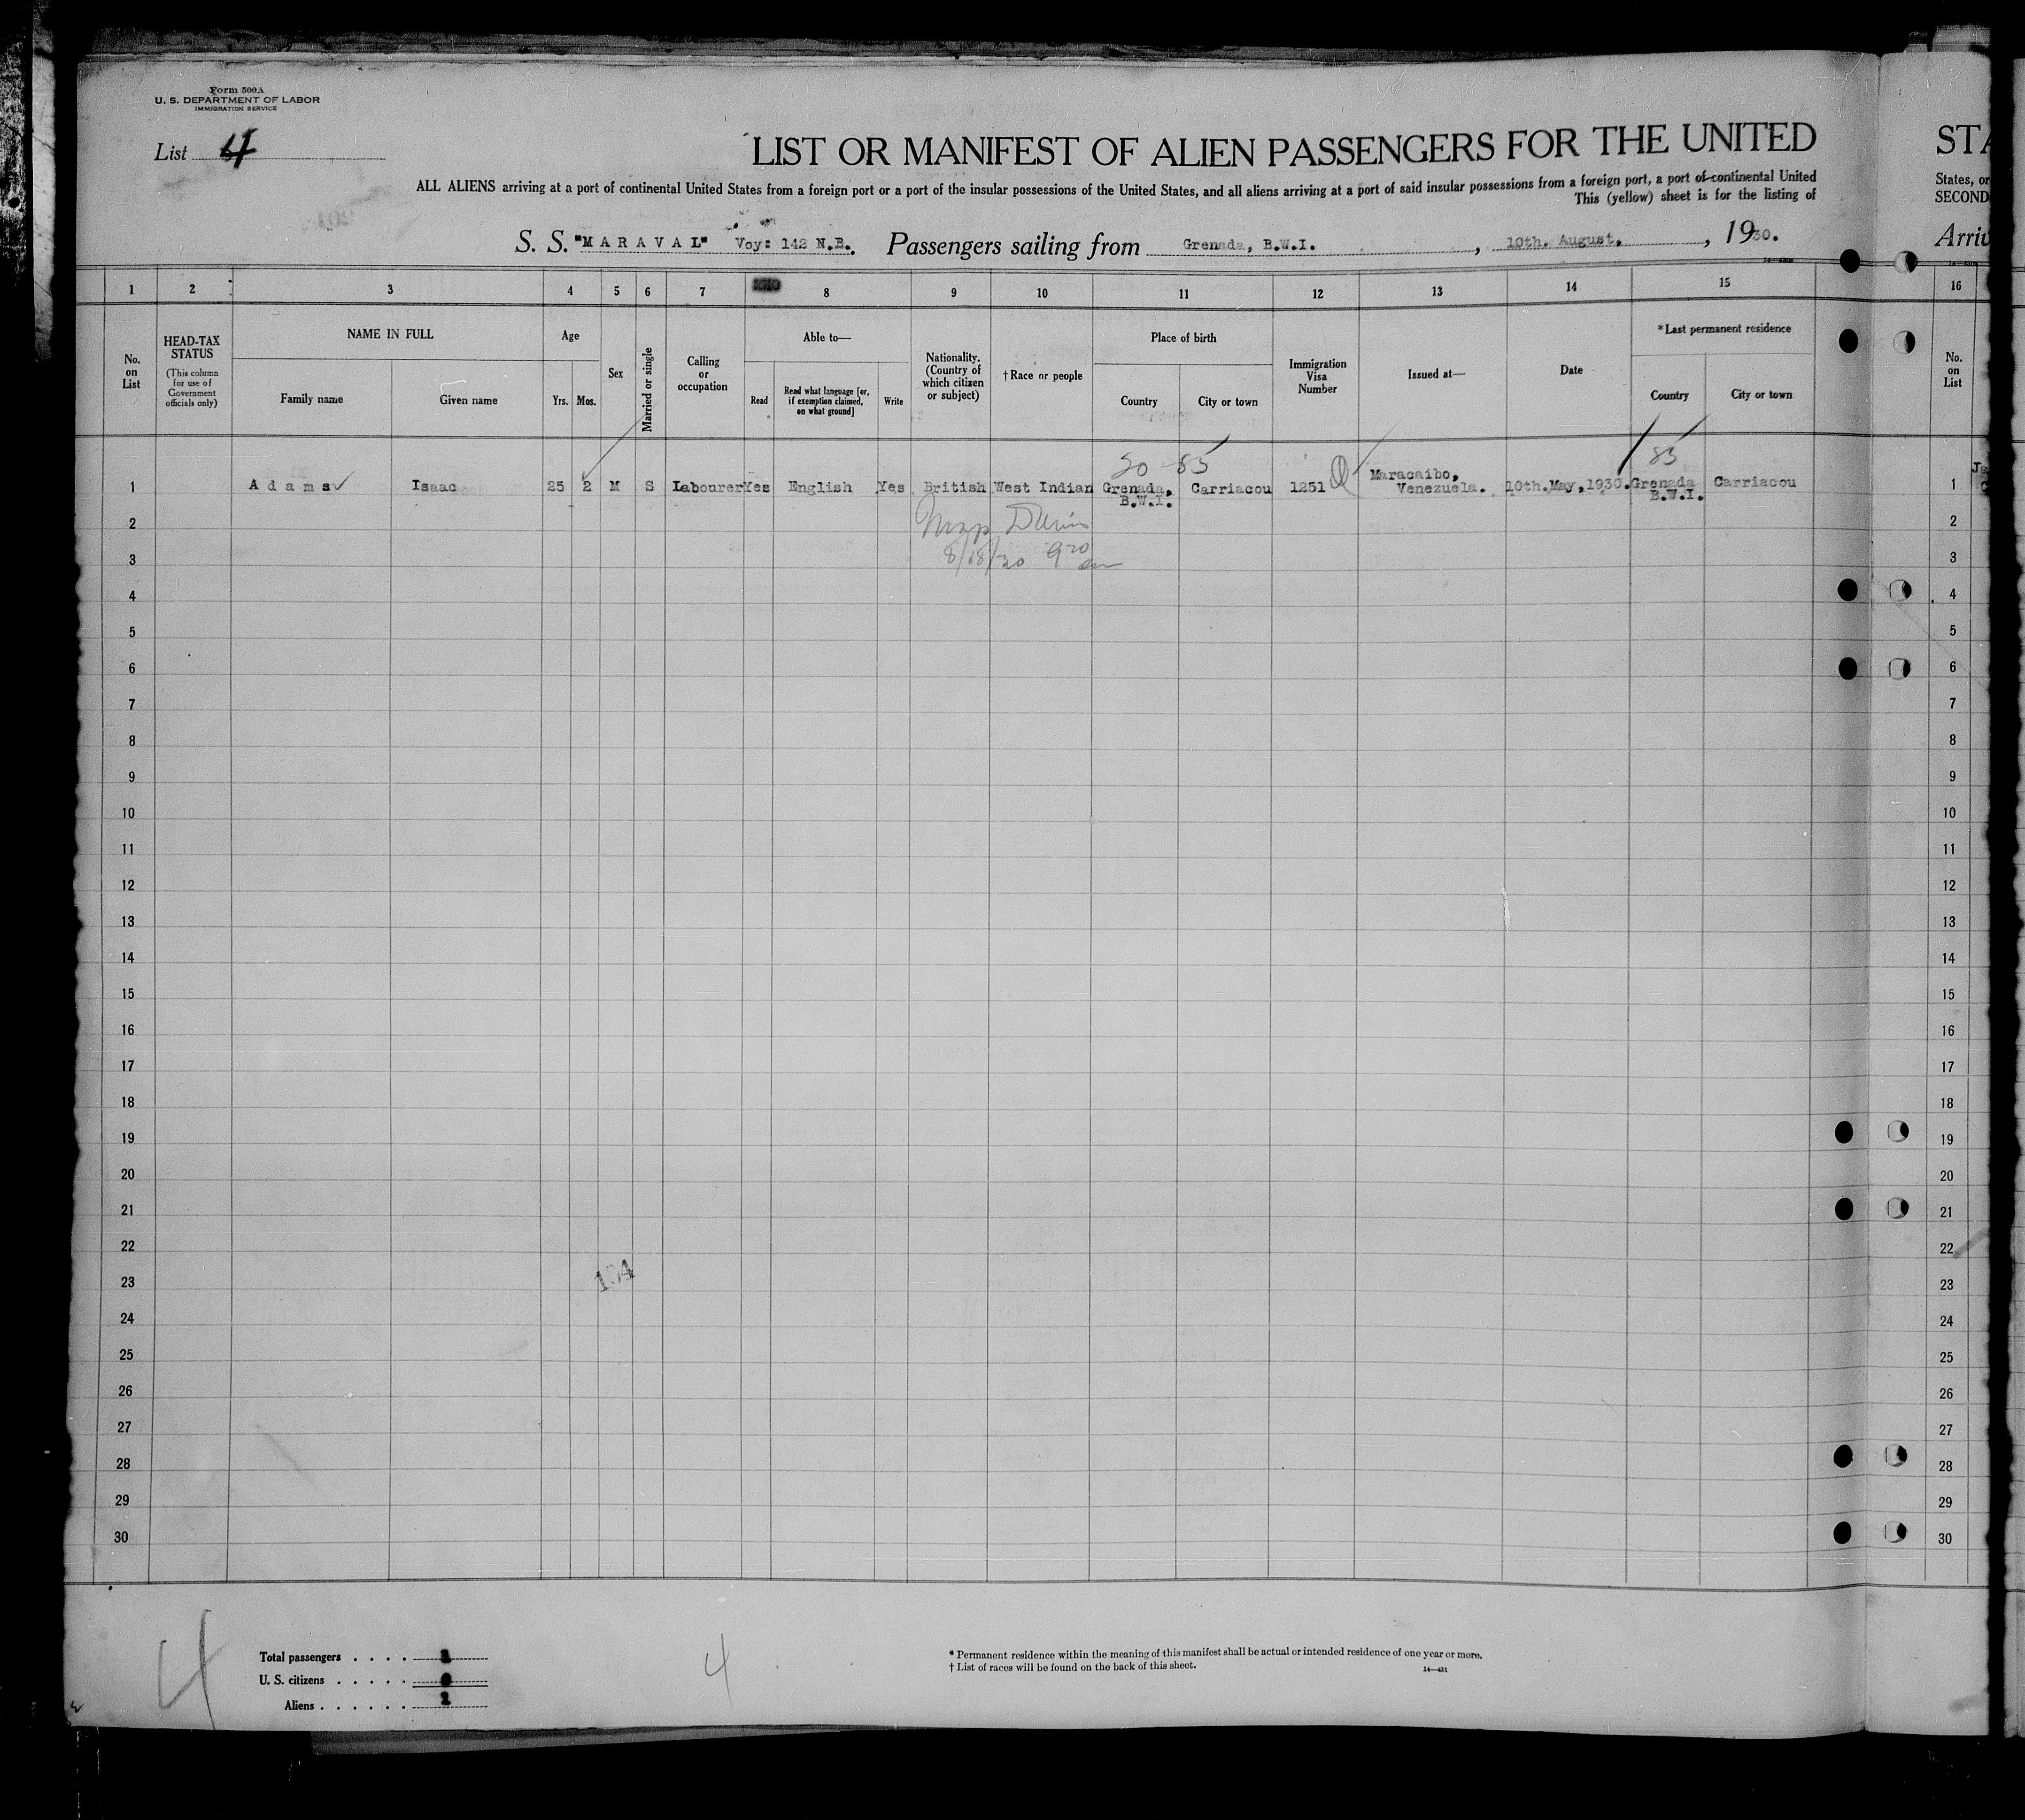 Form 500A
U. S. DEPARTMENT OF LABOR
IMMIGRATION SERVICE
List 4
LIST OR MANIFEST OF ALIEN PASSENGERS FOR THE UNITED
STA
ALL ALIENS arriving at a port of continental United States from a foreign port or a port of the insular possessions of the United States, and all aliens arriving at a port of said insular possessions from a foreign port, a port of continental United
States, or
This (yellow) sheet is for the listing of
SECOND
S. S. "MARAVAL" Voy: 142 N.B. Passengers sailing from Grenada, B.W.I. , 10th. August, , 1930.
Arriv
1 2 3 4 5 6 7 8 9 10 11 12 13 14 15 16
No. on List
HEAD-TAX STATUS
(This column for use of Government officials only)
NAME IN FULL
Family name
Given name
Age
Yrs. Mos.
Sex
Married or single
Calling or occupation
Able to—
Read
Read what language [or, if exemption claimed, on what ground]
Write
Nationality. (Country of which citizen or subject)
† Race or people
Place of birth
Country
City or town
Immigration Visa Number
Issued at—
Date
* Last permanent residence
Country
City or town
No. on List
85
1 Adams Isaac 25 2 M S Labourer Yes English Yes British West Indian Grenada, B.W.I. Carriacou 1251 Maracaibo, Venezuela. 10th.May,1930. Grenada B.W.I. Carriacou 1
2 2
8/18/30 9 20 am
3 3
4 4
5 5
6 6
7 7
8 8
9 9
10 10
11 11
12 12
13 13
14 14
15 15
16 16
17 17
18 18
19 19
20 20
21 21
22 22
23 23
24 24
25 25
26 26
27 27
28 28
29 29
30 30
4
4
Total passengers . . . . 1
U. S. citizens . . . . . 0
Aliens . . . . . . 1
* Permanent residence within the meaning of this manifest shall be actual or intended residence of one year or more.
† List of races will be found on the back of this sheet.
14—431